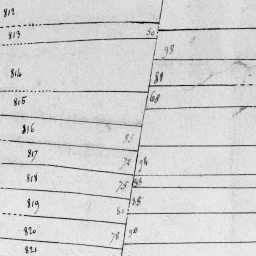 812
813
50
93
814
88
815
68
816
85
817
78
94
818
75
819
80
85
820
78
90
821